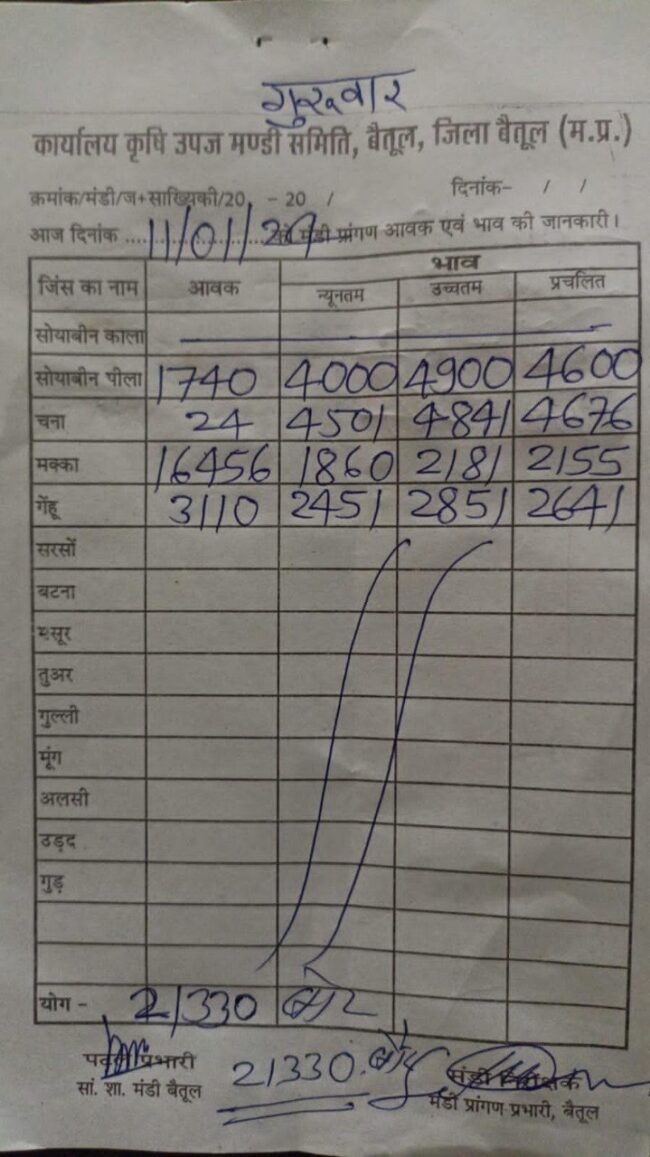 गुरूवार
कार्यालय कृषि उपज मण्डी समिति, बैतूल, जिला बैतूल (म.प्र.)
क्रमांक/मंडी/ज+साख्यिकी/20 - 20 / दिनांक- / /
आज दिनांक ....11/01/24 को मंडी प्रांगण आवक एवं भाव की जानकारी।
जिंस का नाम आवक भाव
न्यूनतम उच्चतम प्रचलित
सोयाबीन काला
सोयाबीन पीला 1740 4000 4900 4600
चना 24 4501 4841 4676
मक्का 16456 1860 2181 2155
गेंहू 3110 2451 2851 2641
सरसों
बटना
मसूर
तुअर
गुल्ली
मूंग
अलसी
उड़द
गुड़
योग - 21330 बोरे
प्रभारी 21330
सां. शा. मंडी बैतूल
मंडी प्रांगण प्रभारी, बैतूल